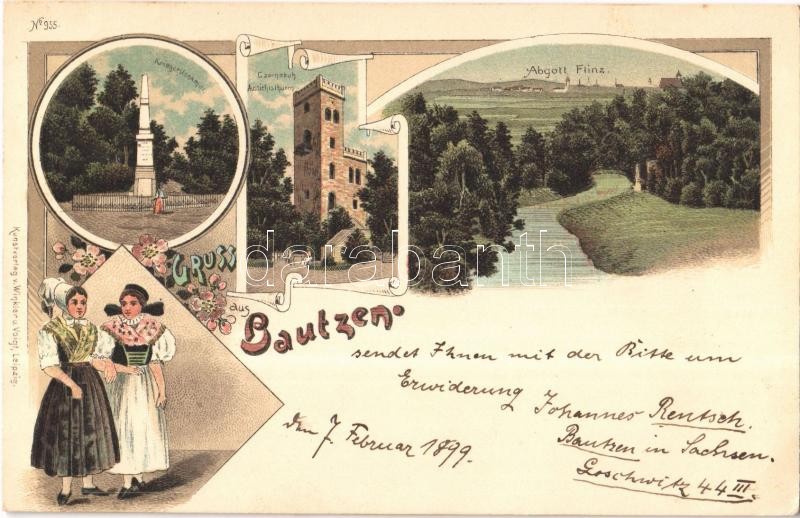 No 955.
Kriegerdenkmal
Czorneboh
Aussichtsthurm
Abgott Flinz.
GRUSS
aus
Bautzen.
darabanth
Kunstverlag v. Winkler u. Voigt, Leipzig.
sendet Ihnen mit der Bitte um
Erwiderung Johannes Rentsch.
Bautzen in Sachsen.
Goschwitz 44 III.
den 7. Februar 1899.